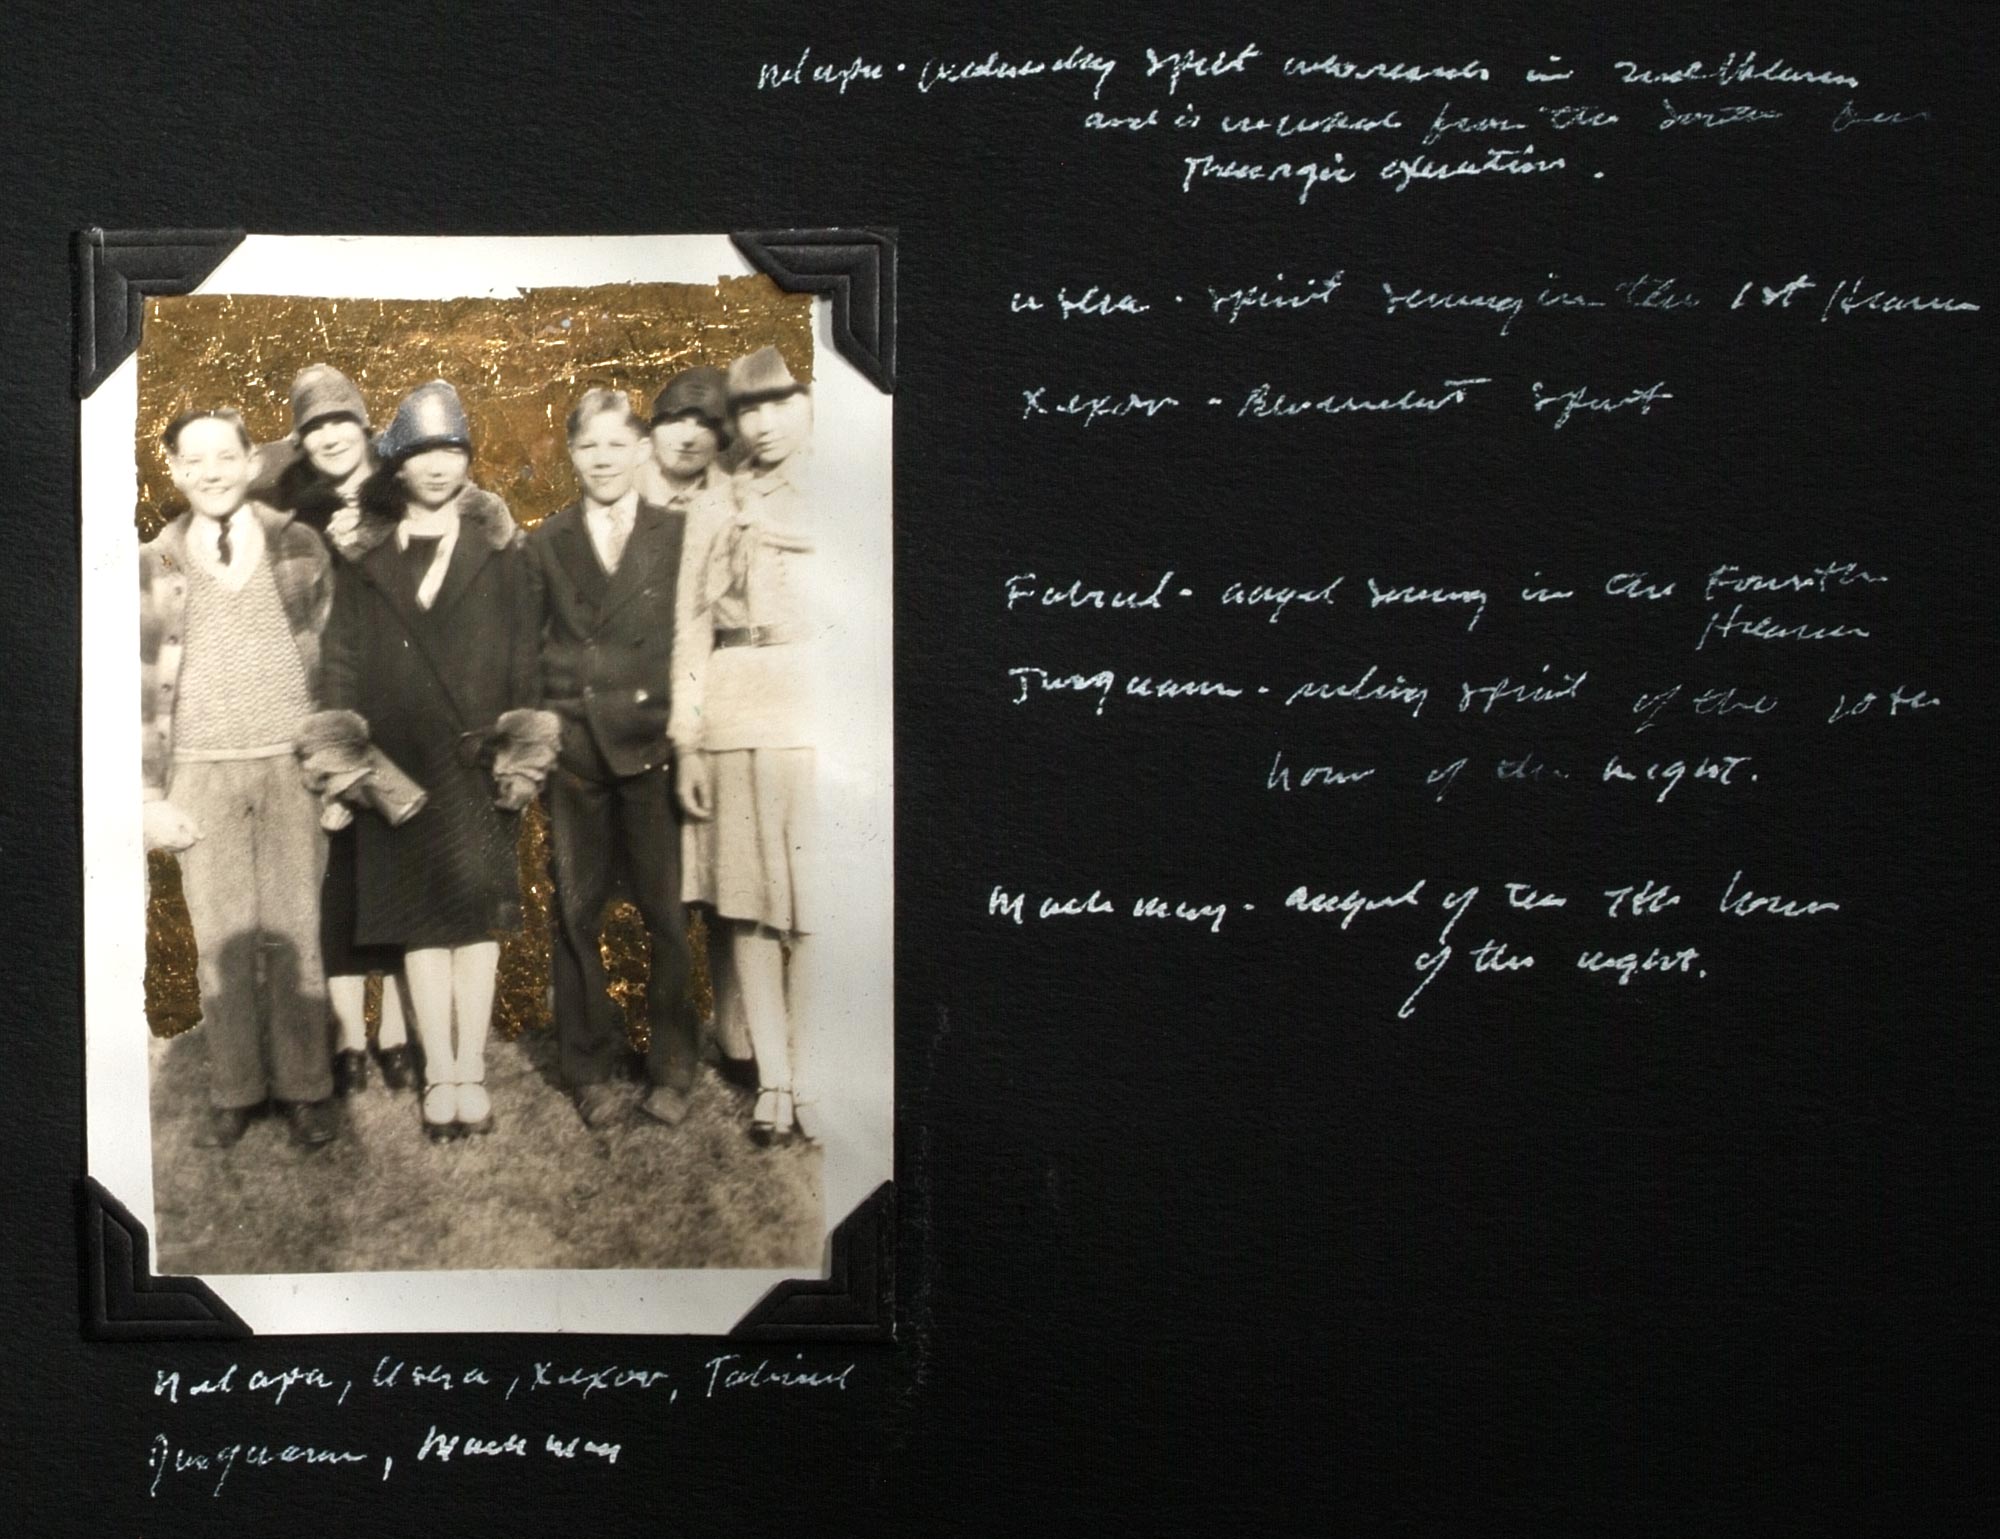 Nelapa - Wednesday Spirit who resides in 2nd Heaven
and is invoked from the South
Theurgic operation.
Usera - Spirit serving in the 1st Heaven
Xexor - Benevolent Spirit
- angel serving in the Fourth
Heaven
Jusguarin - ruling spirit of the 10th
hour of the night.
Mach may - angel of the 7th hour
of the night.
Nelapa, Usera, Xexor,
Jusguarin, Mach may